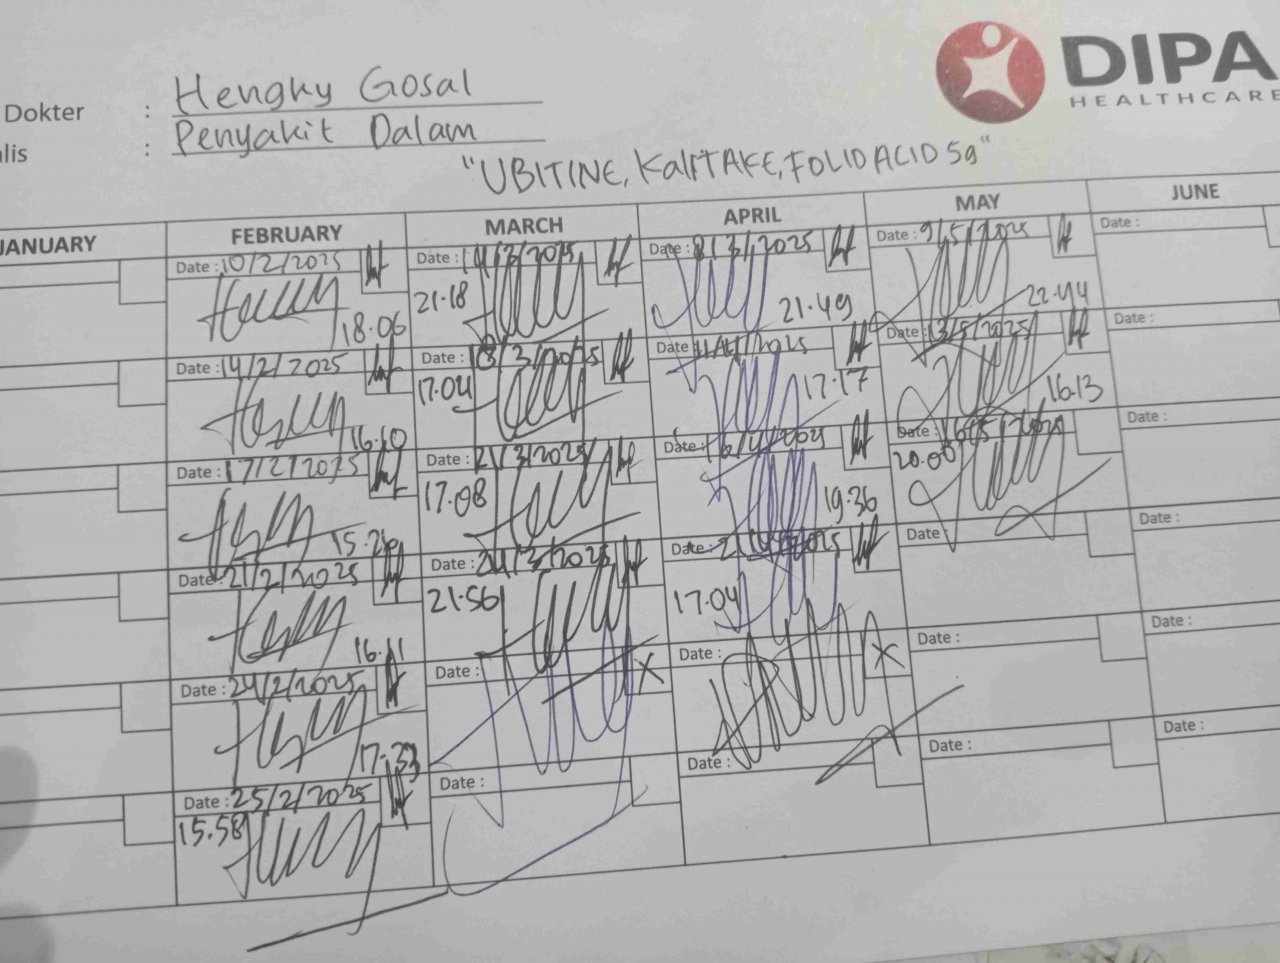 DIPA
HEALTHCARE
Dokter : Hengky Gosal
alis : Penyakit Dalam
"UBITINE, KalITAKE, FOLID ACID 5g"
JANUARY FEBRUARY MARCH APRIL MAY JUNE
Date : 10/2/2025 Date : 14/3/2025 Date : 8/3/2025 Date : 9/5/2025 Date :
18.06 21.18 21.49 22.44
Date : 14/2/2025 Date : 18/3/2025 Date : 11/4/2025 Date : 13/5/2025 Date :
16.10 17.04 17.17 16.13
Date : 17/2/2025 Date : 21/3/2025 Date : 16/4/202 Date : 16/5/2025 Date :
17.08 19.36 20.00
Date : 21/2/2025 Date : 24/3/2025 Date : 21/4/2025 Date : Date :
16.11 21.56 17.04
Date : 24/2/2025 Date : X Date : X Date : Date :
17.33
Date : 25/2/2025 Date : Date : Date : Date :
15.58